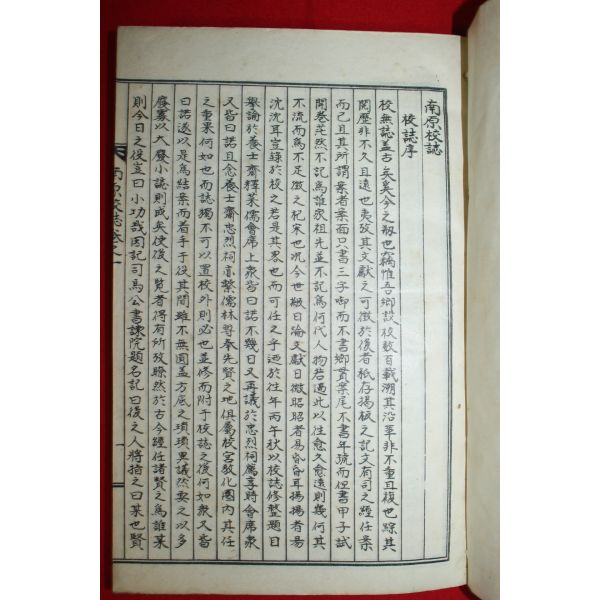 南原校誌
校誌序
校無誌盖古矣矣今之刱也竊惟吾鄕設校數百載溯其沿革非不重且復也踪其
閱歷非不久且遠也夷攷其文獻之可徵於後者秪存揭板之記文有司之經任案
而已且其所謂案者案面只書三字啣而不書鄕貫案尾不書年號而但書甲子試
開卷茫然不記爲誰家祖先並不記爲何代人物若過此以往愈久愈遠則幾何其
不流而爲不足徵之杞宋也况今世級日淪文獻日微昭昭者易昏昏耳揚揚者易
沈沈耳豈錄於校之君是其畧也而可任之乎迺於往年丙午秋以校誌修整題目
擧論於養士齋釋菜儒會席上衆皆曰諾不幾日又再議於忠烈祠薦享時會席衆
又皆曰諾且念養士齋忠烈祠亦繫儒林尊奉先賢之地俱屬校宮敎化圈內其任
之重果何如也而誌獨不可以置校外則必也並修而附于校誌之後何如衆又皆
曰諾遂以是爲結案而着手于役其間雖不無圓盖方底之瑣瑣思議然要之以多
廢寡以大廢小誌則成矣使後之覽者得有所攷瞭然於古今經任諸賢之爲誰某
則今日之役豈曰小功哉因記司馬公書諫院題名記曰後之人將指之曰某也賢
南原校誌卷之一
一